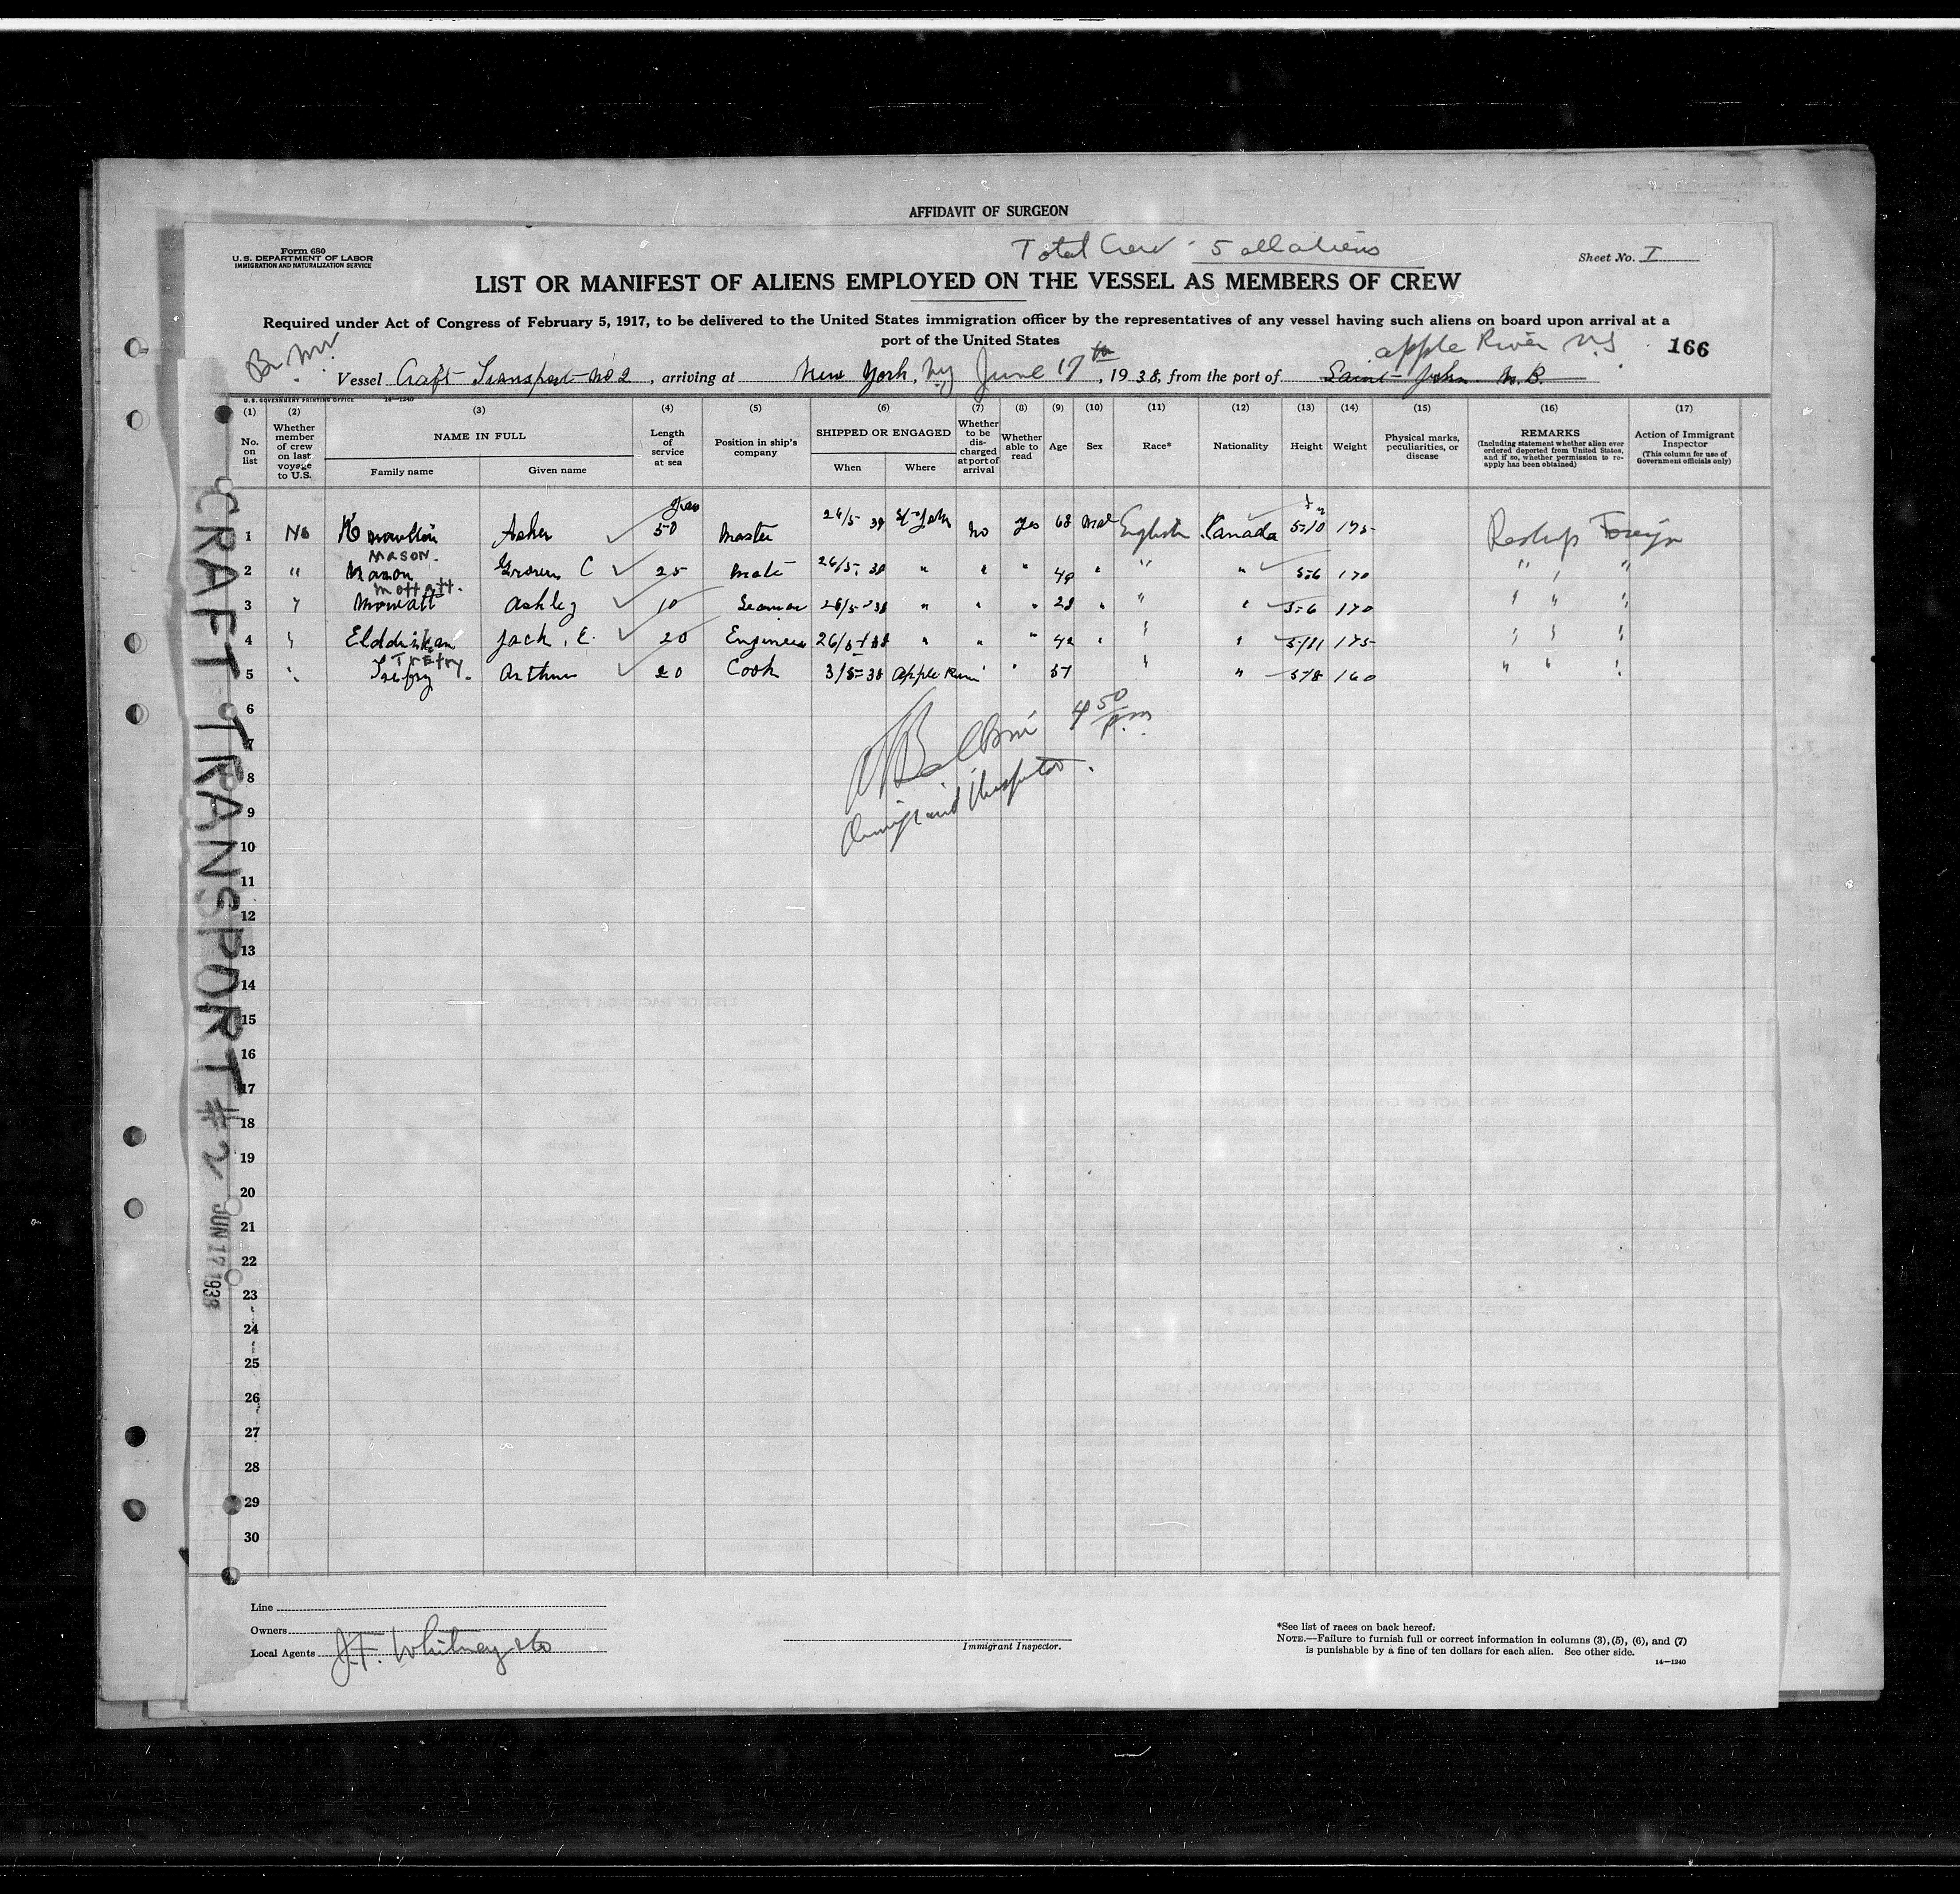 AFFIDAVIT OF SURGEON
Form 680
U. S. DEPARTMENT OF LABOR
IMMIGRATION AND NATURALIZATION SERVICE
Total Crew - 5 all aliens
Sheet No. I
LIST OR MANIFEST OF ALIENS EMPLOYED ON THE VESSEL AS MEMBERS OF CREW
Required under Act of Congress of February 5, 1917, to be delivered to the United States immigration officer by the representatives of any vessel having such aliens on board upon arrival at a
port of the United States
Apple River N.S.
166
Vessel Craft Transport No 2, arriving at New York, N.Y. June 17th, 1938, from the port of Saint John N.B.
U. S. GOVERNMENT PRINTING OFFICE 14—1240
(1) (2) (3) (4) (5) (6) (7) (8) (9) (10) (11) (12) (13) (14) (15) (16) (17)
No. on list
Whether member of crew on last voyage to U.S.
NAME IN FULL
Family name
Given name
Length of service at sea
Position in ship's company
SHIPPED OR ENGAGED
When
Where
Whether to be discharged at port of arrival
Whether able to read
Age
Sex
Race*
Nationality
Height
Weight
Physical marks, peculiarities, or disease
REMARKS
(Including statement whether alien ever ordered deported from United States, and if so, whether permission to reapply has been obtained)
Action of Immigrant Inspector
(This column for use of Government officials only)
1 No Knowlton Asher 50 Master 26/5 38 St John No Yes 68 Male English Canada 5/10 175 Reship Foreign
MASON.
2 " Mason C 25 Mate 26/5 38 " " " 49 " " " 5-6 170 " "
Moffatt.
3 " Ashley 10 Seaman 26/5 38 " " " 28 " " " 5-6 170 " " "
4 " Jack. E. 20 Engineer 26/5 38 " " " 42 " " 5/11 175 " " "
Trefry
5 " Trefry. Arthur 20 Cook 3/5 38 Apple River " " 57 " " 5/8 160 " " "
6
4 50 p.m.
7
8
Immigrant Inspector.
9
10
11
12
13
14
15
16
17
18
19
20
21
22
23
24
25
26
27
28
29
30
CRAFT TRANSPORT # 2
JUN 17 1938
Line
Owners
Local Agents J.F. Whitney & Co
Immigrant Inspector.
*See list of races on back hereof.
NOTE.—Failure to furnish full or correct information in columns (3), (5), (6), and (7)
is punishable by a fine of ten dollars for each alien. See other side.
14—1240